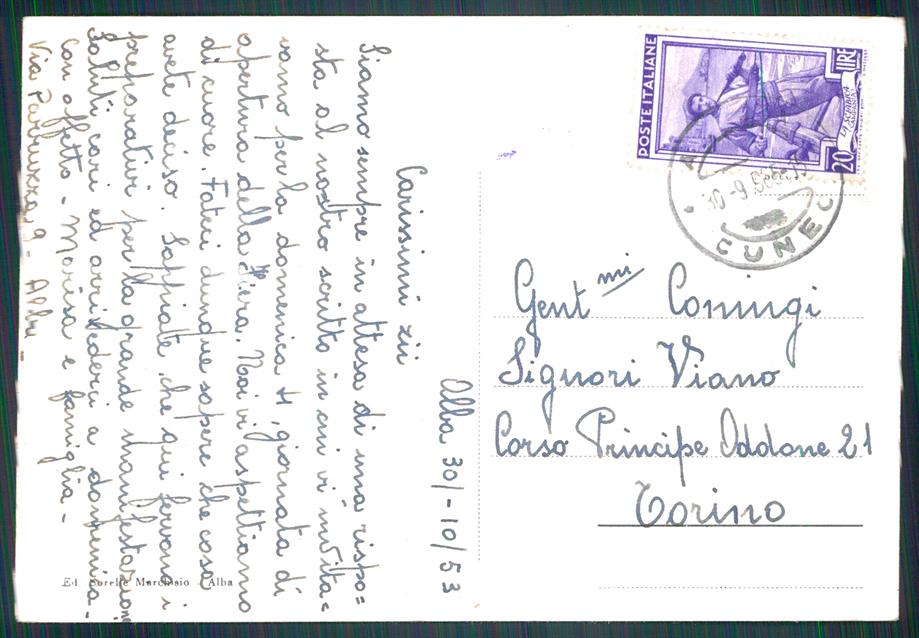 Alba 30/-10/53
Carissimi zii
Siamo sempre in attesa di una rispo=
sta al nostro scritto in cui vi invita=
vamo per la domenica 4, giornata di
apertura della Fiera. Noi vi aspettiamo
di cuore. Fateci dunque sapere che cosa
avete deciso. Sappiate che qui fervono i
preparativi per la grande manifestazione
Saluti cari ed arrivederci a domenica -
Con affetto - Marisa e famiglia -
Via 9 - Alba -
Ed. Sorelle Marchisio - Alba
POSTE ITALIANE
LIRE
20
LA SCIABICA
CAMPANIA
CUNEO
Gent mi Coniugi
Signori Viano
Corso Principe Oddone 21
Torino